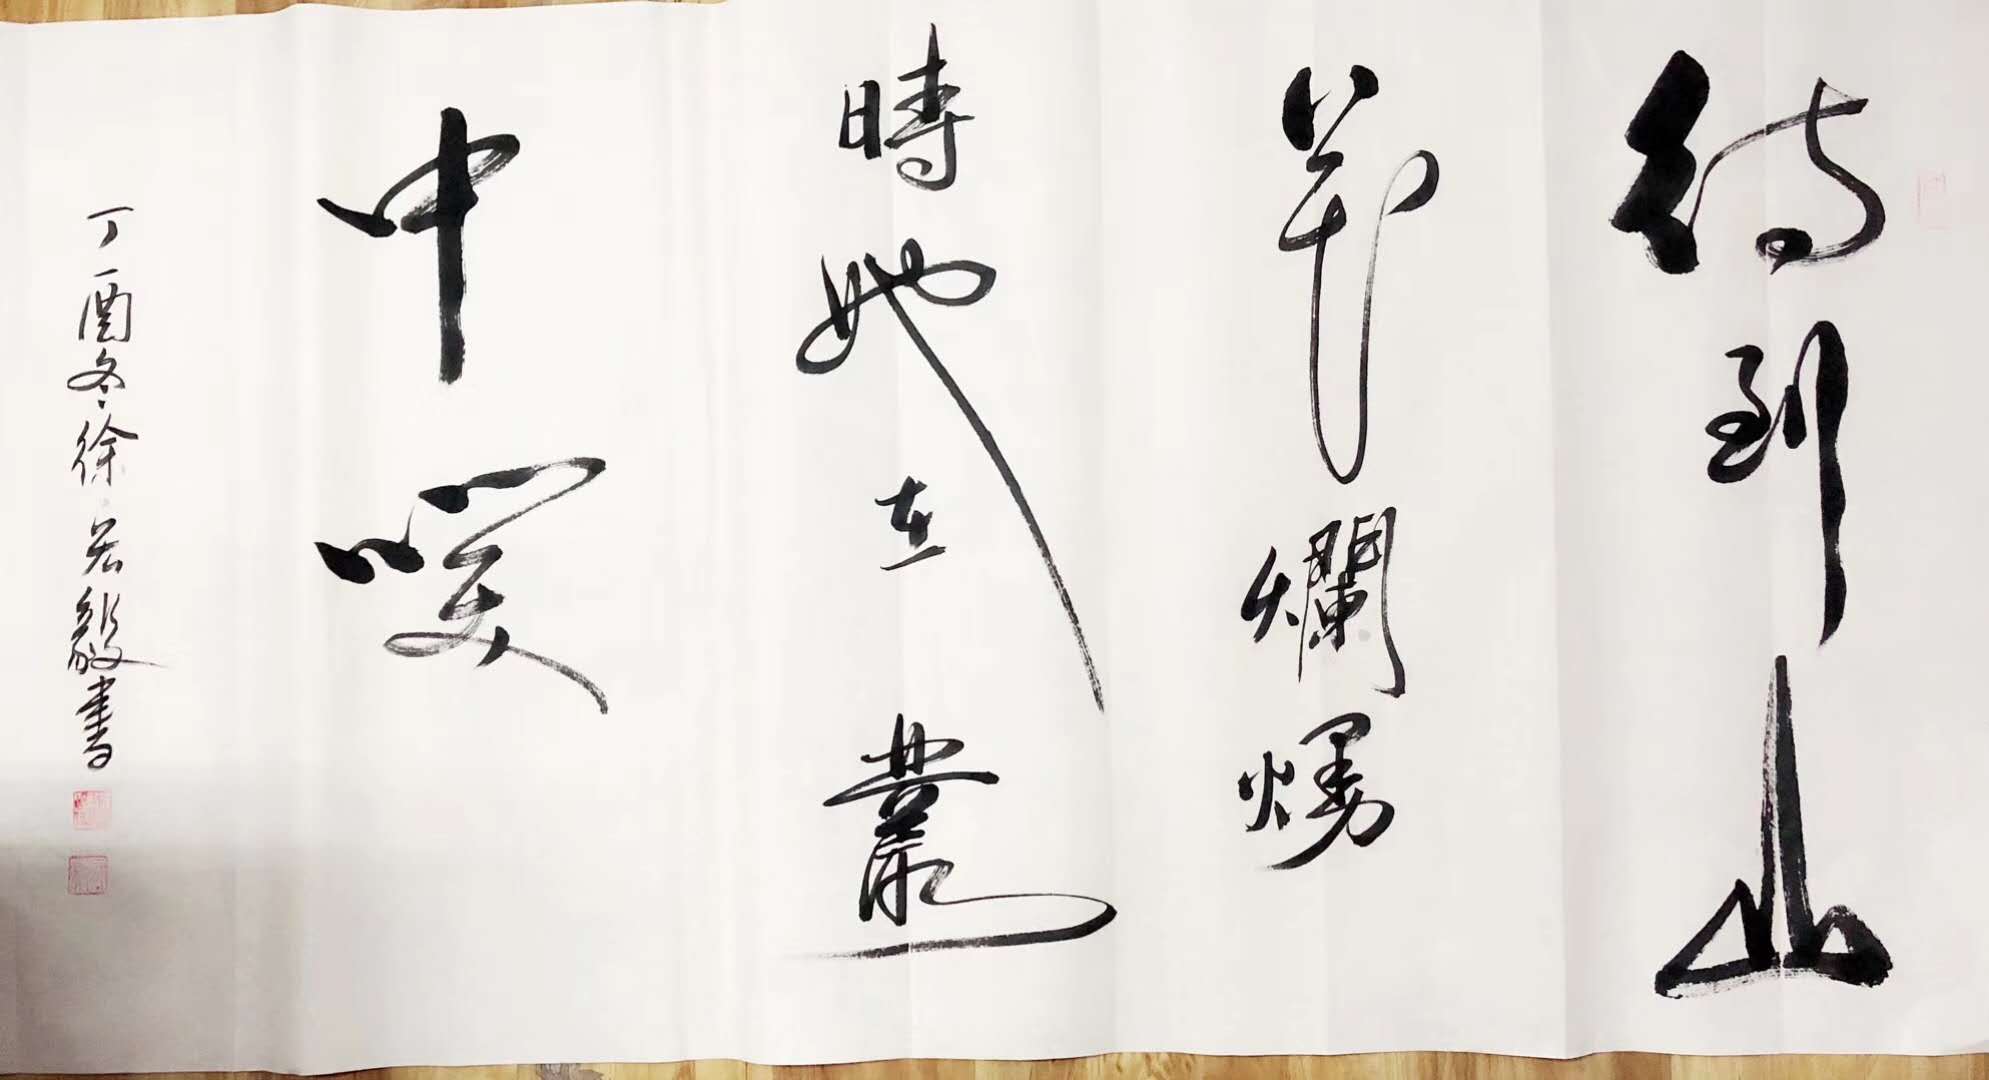 待到山
花爛熳
時她在叢
中咲
丁酉冬徐毅書